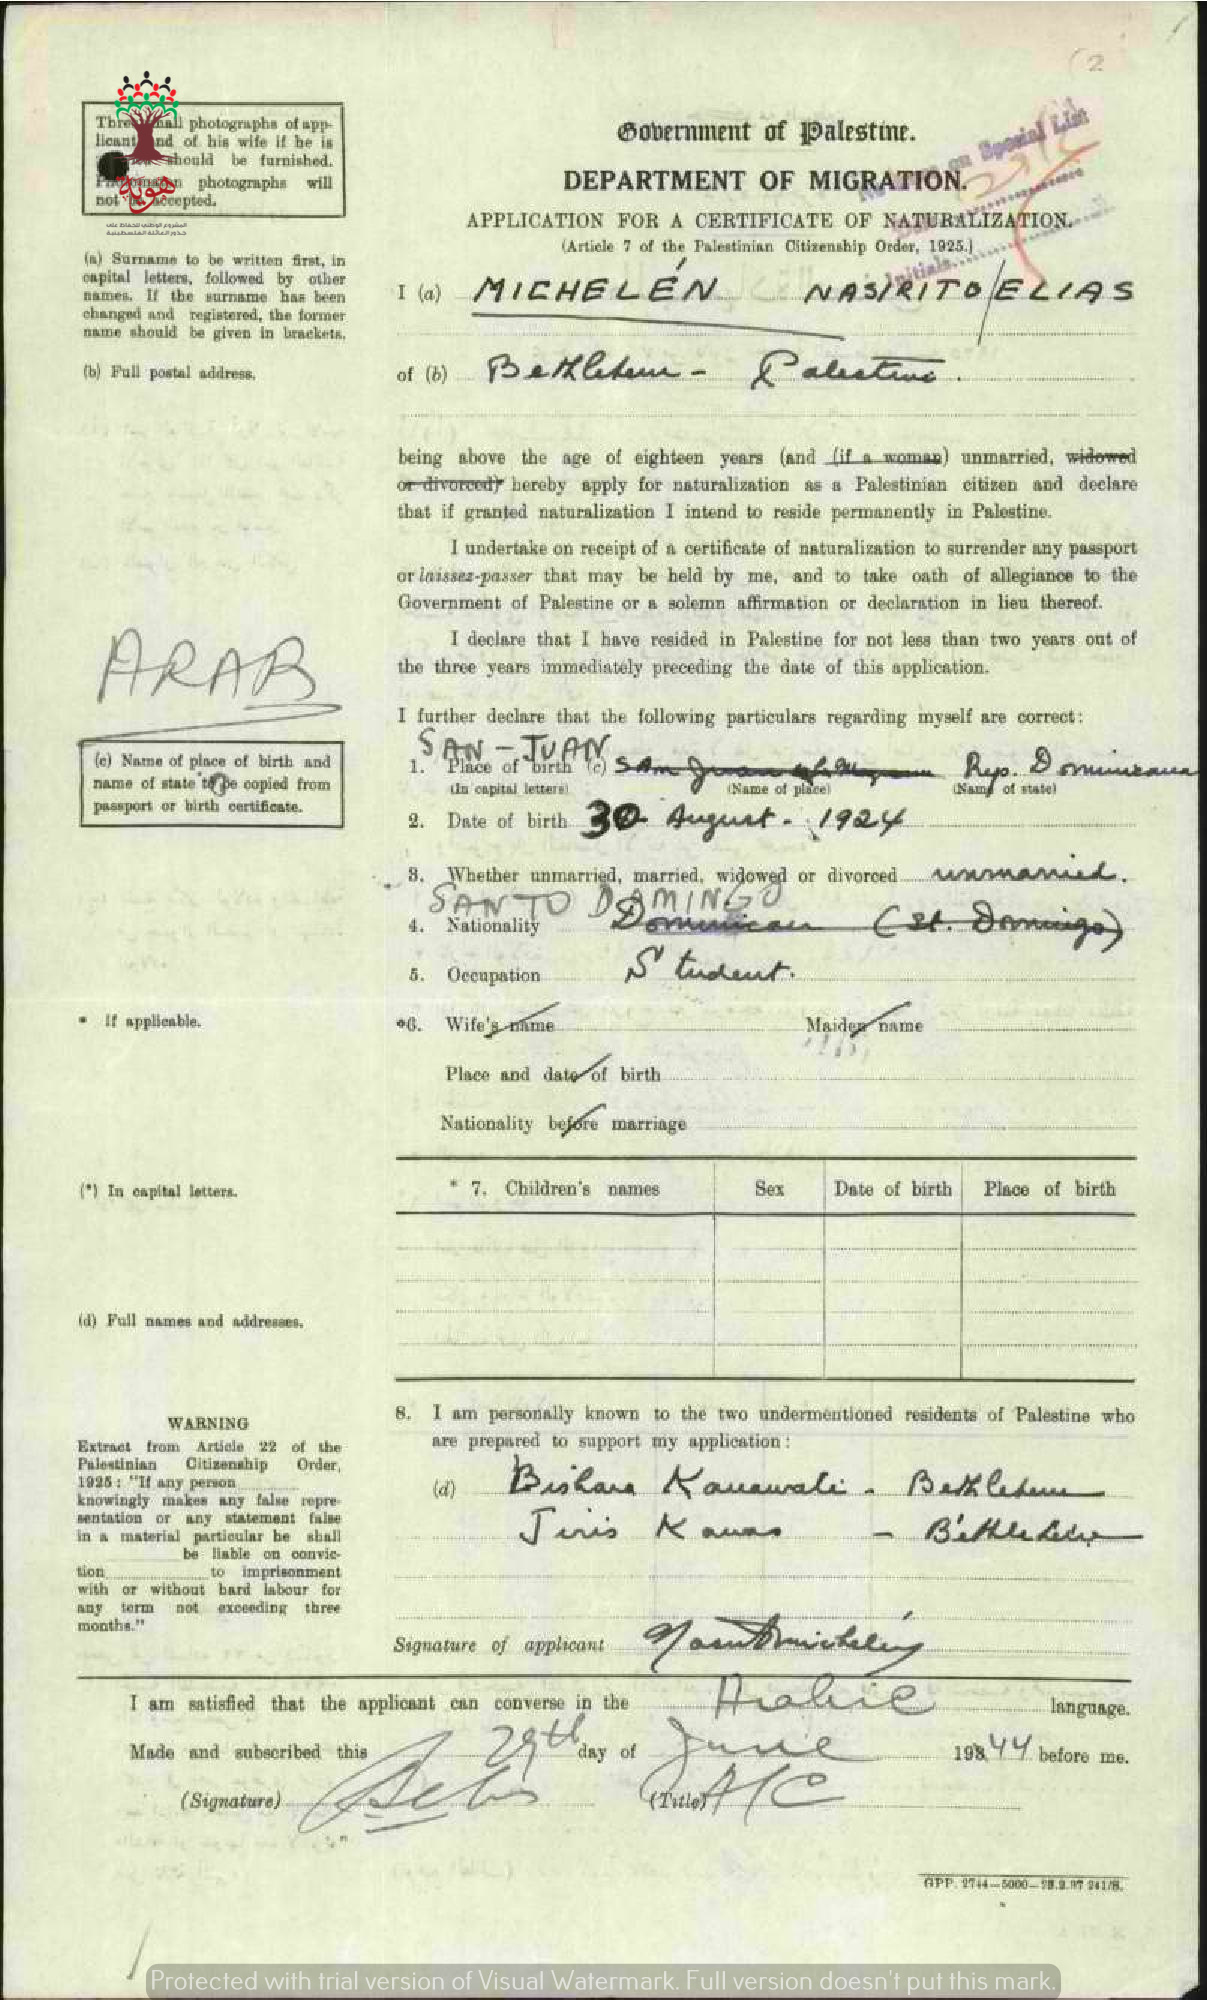 (2
Three small photographs of app-
licant and of his wife if he is
should be furnished.
photographs will
not be accepted.
هوية
المشروع الوطني للحفاظ على
جذور العائلة الفلسطينية
Government of Palestine.
DEPARTMENT OF MIGRATION.
on Special List
Initials
APPLICATION FOR A CERTIFICATE OF NATURALIZATION.
(Article 7 of the Palestinian Citizenship Order, 1925.)
(a) Surname to be written first, in
capital letters, followed by other
names. If the surname has been
changed and registered, the former
name should be given in brackets.
I (a) MICHELÉN NASIRITO/ELIAS
(b) Full postal address.
of (b) Bethlehem - Palestine.
being above the age of eighteen years (and (if a woman) unmarried, widowed
or divorced) hereby apply for naturalization as a Palestinian citizen and declare
that if granted naturalization I intend to reside permanently in Palestine.
I undertake on receipt of a certificate of naturalization to surrender any passport
or laissez-passer that may be held by me, and to take oath of allegiance to the
Government of Palestine or a solemn affirmation or declaration in lieu thereof.
I declare that I have resided in Palestine for not less than two years out of
the three years immediately preceding the date of this application.
ARAB
I further declare that the following particulars regarding myself are correct:
(c) Name of place of birth and
name of state to be copied from
passport or birth certificate.
SAN - JUAN
1. Place of birth (c) San Juan Rep. Dominicana
(In capital letters) (Name of place) (Name of state)
2. Date of birth 30 August - 1924
3. Whether unmarried, married, widowed or divorced unmarried.
SANTO DAMINGO
4. Nationality Dominican (St. Domingo)
5. Occupation Student.
* If applicable.
*6. Wife's name Maiden name
Place and date of birth
Nationality before marriage
(*) In capital letters.
* 7. Children's names Sex Date of birth Place of birth
(d) Full names and addresses.
8. I am personally known to the two undermentioned residents of Palestine who
are prepared to support my application:
(d) Bishara Kanawati - Bethlehem
Jiris Kawas - Bethlehem
WARNING
Extract from Article 22 of the
Palestinian Citizenship Order,
1925: "If any person
knowingly makes any false repre-
sentation or any statement false
in a material particular he shall
be liable on convic-
tion to imprisonment
with or without hard labour for
any term not exceeding three
months."
Signature of applicant
I am satisfied that the applicant can converse in the Arabic language.
Made and subscribed this 29th day of June 19344 before me.
(Signature) (Title) A/C
GPP. 2744—5000—28.2.37 241/S.
Protected with trial version of Visual Watermark. Full version doesn't put this mark.